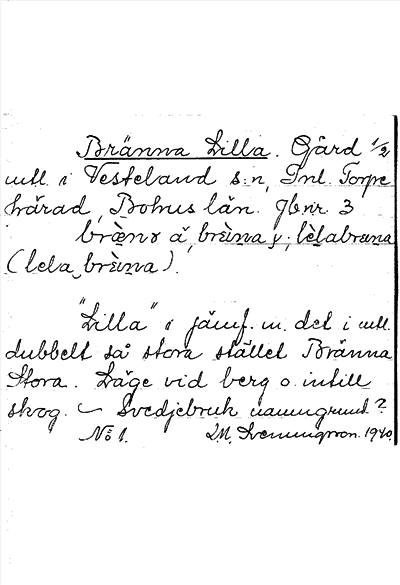 Bränna Lilla. Gård 1/2
mtl. i Vesteland s:n, Inl. Torpe
härad, Bohus län. Jbnr. 3
(lela brɛ̀na).
"Lilla" i jämf. m. det i mtl.
dubbelt så stora stället Bränna
Stora. Läge vid berg o. intill
skog. ~ Svedjebruk namngrund?
No 1. 1940.